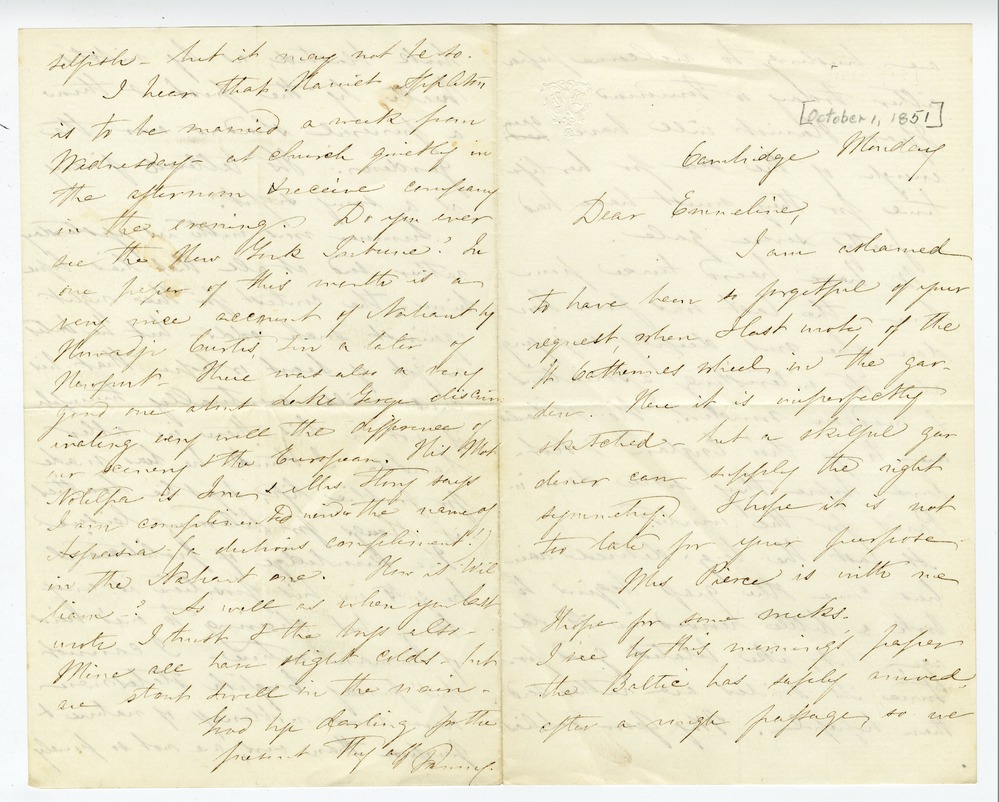 [October 1, 1851]
Cambridge Monday
Dear Emmeline,
I am ashamed
to have been so forgetful of your
request, when I last wrote, of the
St Catherine's wheel in the gar-
den. Here it is imperfectly
sketched - but a skilful gar
dener can supply the right
symmetry. I hope it is not
too late for your purpose.
Mrs Pierce is with me
I hope for some weeks.
I see by this morning's paper
the Baltic has safely arrived,
after a rough passage, so we
selfish - but it may not be so.
I hear that Harriet Appleton
is to be married a week from
Wednesday - at church quietly in
the afternoon & receive company
in the evening. Do you ever
see the New York Tribune? In
one paper of this month is a
very nice account of Nahant by
Howadji Curtis, & in a later of
Newport - There was also a very
good one about Lake George discrim
inating very well the difference of
our scenery & the European. His Mot
Notelpa is Tom, & Mrs. Story says
I am complimented under the name of
Aspasia (a dubious compliment!)
in the Nahant one. How is Wil
liam? As well as when you last
wrote I trust & the boys also -
Mine all have slight colds - but
are stout & well in the main -
Good bye darling for the
present thy aff Fanny.